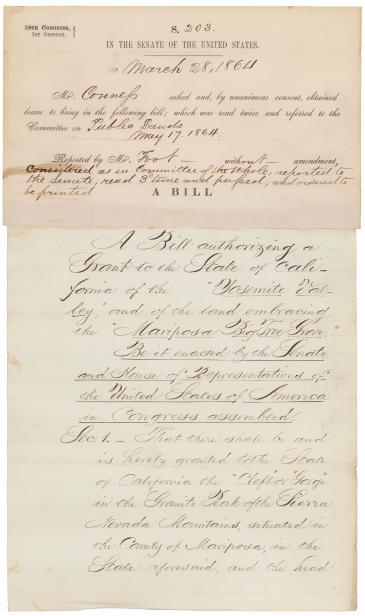 38TH CONGRESS,
1ST SESSION.
S. 203.
IN THE SENATE OF THE UNITED STATES.
March 28, 1864
Mr. Conness asked and, by unanimous consent, obtained
leave to bring in the following bill; which was read twice and referred to the
Committee on Public Lands
May 17. 1864.
Reported by Mr. Foot without amendment,
Considered as in Committee of the Whole, reported to
the Senate, read 3d time and passed, and ordered to
be printed
A BILL
A Bill authorizing a
Grant to the State of Cali-
fornia of the "Yosemite Val-
ley," and of the land embracing
the "Mariposa Big Tree Grove."
Be it enacted by the Senate
and House of Representatives of
the United States of America
in Congress assembled.
Sec. 1. – That there shall be and
is hereby granted to the State
of California the "Cleft" or "Gorge"
in the Granite Peak of the Sierra
Nevada Mountains, situated in
the County of Mariposa, in the
State aforesaid, and the head